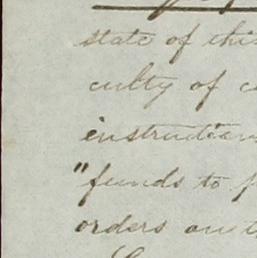 state of this
culty of
instructions
"funds to
orders on